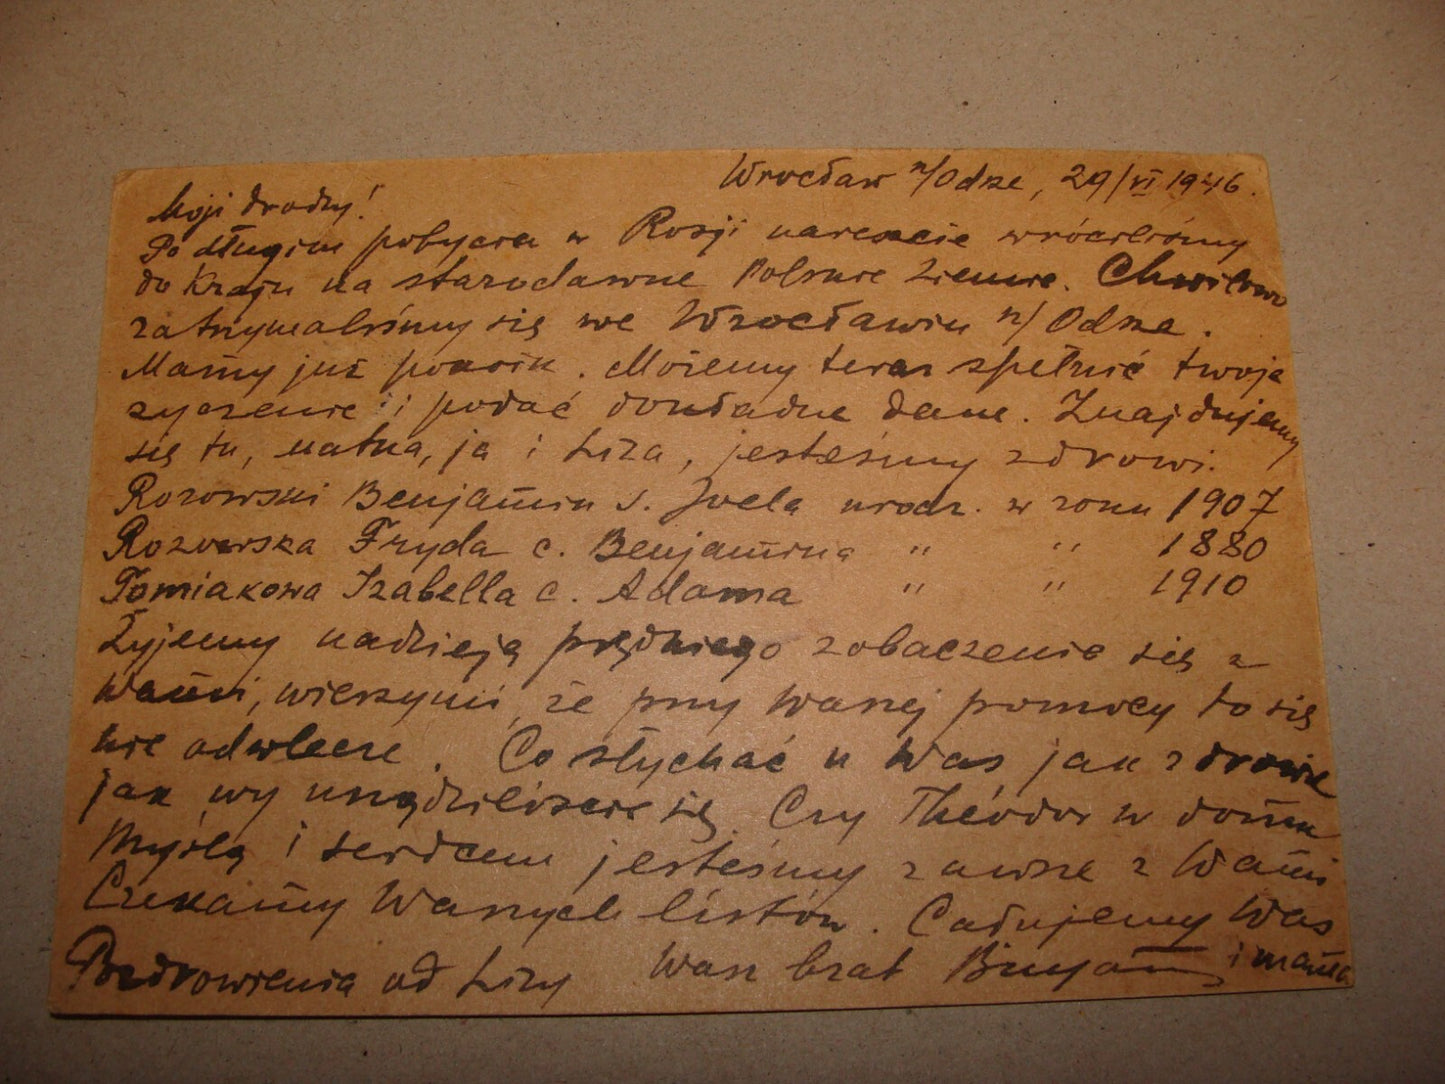 Wrocław n/Odze, 29/VI 1946.
Moji drodzy!
Po długim pobycia w Rosji nareszcie wróciliśmy
do Kraju na starodawne Polskie ziemie. Chwilowo
zatrzymaliśmy się we Wrocławiu n/Odze.
Mamy już pokoik. Możemy teraz spełnić twoje
życzenie i podać dokładne dane. Znajdujemy
się tu, matka, ja i Liza, jesteśmy zdrowi.
Rozowski Benjamin s. Joela urodz. w roku 1907
Rozowska Fryda c. Benjamina " " 1880
Tomiakowa Izabella c. Adama " " 1910
Żyjemy nadzieją prędkiego zobaczenie się z
Wami, wierzymy, że przy Waszej pomocy to się
nie odwlecze. Co słychać u Was jak zdrowie
jak wy urządziliście się. Czy Théodor w domu
Myślą i serdcem jesteśmy zawsze z Wami
Czekamy Waszych listów. Całujemy Was
Wasz brat Binyam i mama
Pozdrowienia od Lizy